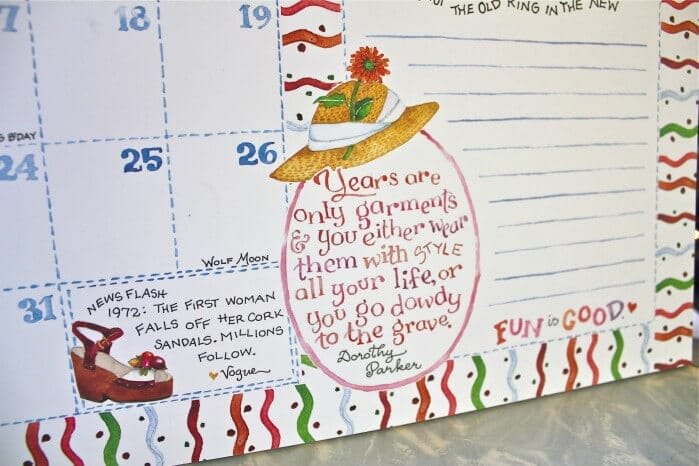 THE OLD RING IN THE NEW
18
19
S B'DAY
24
25
26
WOLF MOON
31
NEWS FLASH
1972: THE FIRST WOMAN
FALLS OFF HER CORK
SANDALS. MILLIONS
FOLLOW.
Vogue
Years are
only garments
& you either wear
them with STYLE
all your life, or
you go dowdy
to the grave.
Dorothy
Parker
FUN is GOOD.